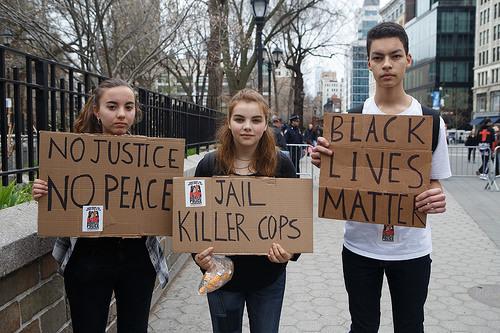 NO JUSTICE
NO PEACE
JAIL
KILLER COPS
BLACK
LIVES
MATTER